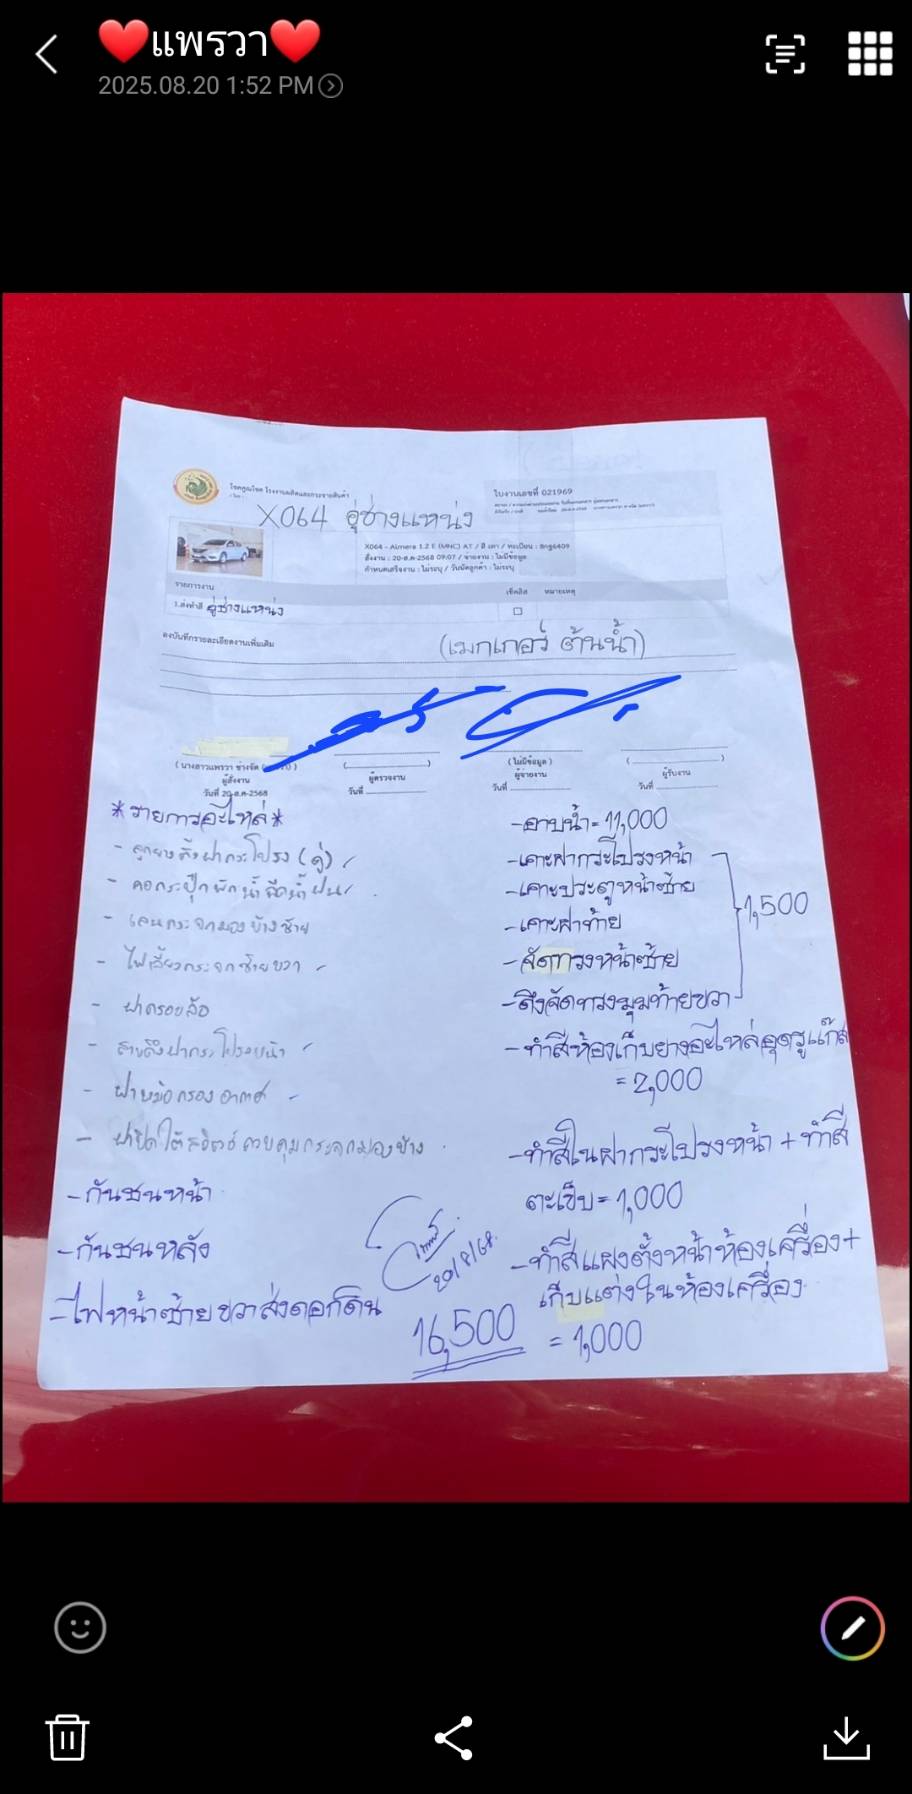 ❤️แพรวา❤️
2025.08.20 1:52 PM
ใบงานเลขที่ 021969
X064 อู่ช่างแหน่ง
X064 - Almera 1.2 E (MNC) AT / สี เทา / ทะเบียน : 8กฐ6409
สั่งงาน : 20-ส.ค-2568 09:07 / จ่ายงาน : ไม่มีข้อมูล
กำหนดเสร็จงาน : ไม่ระบุ / วันนัดลูกค้า : ไม่ระบุ
รายการงาน เช็คลิส หมายเหตุ
1.ส่งทำสี อู่ช่างแหน่ง
ลงบันทึกรายละเอียดงานเพิ่มเติม
(เมกเกอร์ ต้นน้ำ)
(นางสาวแพรวา ช่างจัด
ผู้สั่งงาน
วันที่ 20-ส.ค-2568
ผู้ตรวจงาน
วันที่
(ไม่มีข้อมูล)
ผู้จ่ายงาน
วันที่
ผู้รับงาน
วันที่
*รายการอะไหล่*
- ลูกยางค้ำฝากระโปรง (คู่)
- คอกระปุกพักน้ำฉีดน้ำฝน
- เลนกระจกมองข้างซ้าย
- ไฟเลี้ยวกระจกซ้ายขวา
- ฝาครอบล้อ
- สายดึงฝากระโปรงหน้า
- ฝาหม้อกรองอากาศ
- ฝาปิดใต้สวิตช์ควบคุมกระจกมองข้าง
- กันชนหน้า
- กันชนหลัง
- ไฟหน้าซ้ายขวาส่งดอกดิน
- อาบน้ำ = 11,000
- เคาะฝากระโปรงหน้า
- เคาะประตูหน้าซ้าย
- เคาะฝาท้าย
- จัดทรงหน้าซ้าย
- ดึงจัดทรงมุมท้ายขวา
1,500
- ทำสีห้องเก็บยางอะไหล่อุดรูแก๊ส
= 2,000
- ทำสีในฝากระโปรงหน้า + ทำสี
ตะเข็บ = 1,000
- ทำสีแผงตั้งหน้าห้องเครื่อง +
เก็บแต่งในห้องเครื่อง
= 1,000
20/8/68
16,500